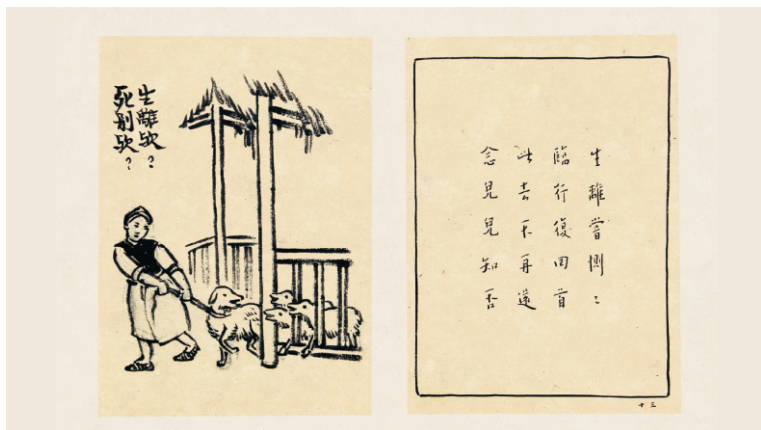 生離歟？
死別歟？
生離嘗惻〻
臨行復回首
此去不再還
念兒兒知否
十三